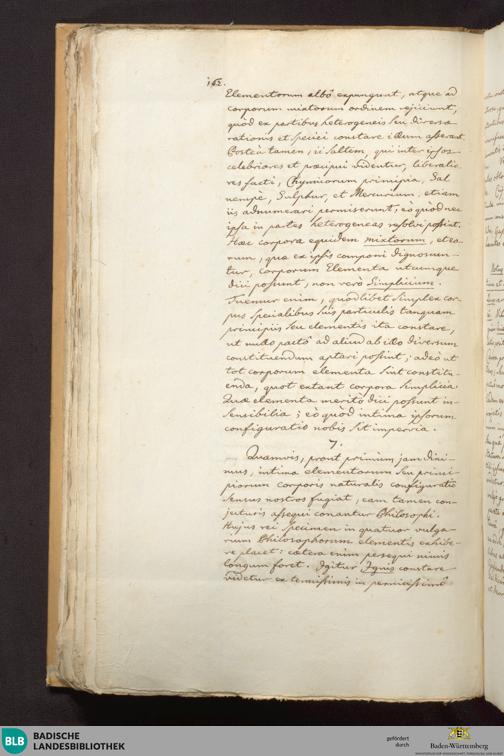 162.
Elementorum albô expungunt, atque ad
corporum mixtorum ordinem rejiciunt,
quòd ex partibus heterogeneis seu diversæ
rationis et speciei constare illum asserant.
Posteà tamen, ii saltem, qui inter ipsos
celebriores et præcipui videntur, liberalio
res facti, Chymicorum principia, Sal
nempè, Sulphur, et Mercurium etiam
iis adnumerari permiserunt, eò quòd nec
ipsa in partes heterogeneas resolvi possint.
Hæc corpora equidem mixtorum, et eo-
rum, quæ ex ipsis componi dignoscun-
tur, corporum Elementa utcumque
dici possunt, non verò Simplicium.
Tuemur enim, quodlibet simplex cor-
pus specialibus suis particulis tanquam
principiis seu elementis ita constare,
ut nullo pactô ad aliud ab illo diversum
constituendum aptari possint; adeò ut
tot corporum elementa sint constitu-
enda, quot extant corpora simplicia.
Quæ elementa meritò dici possunt in-
sensibilia; eò quòd intima ipsorum
configuratio nobis sit impervia.
7.
Quamvis, prout primùm jam dixi-
mus, intima elementorum seu princi-
piorum corporis naturalis configuratio
sensus nostros fugiat, eam tamen con-
jecturis assequi conantur Philosophi.
Hujus rei specimen in quatuor vulga-
rium Philosophorum elementis exhibe-
re placet: cætera enim persequi nimis
longum foret. Igitur Ignis constare
videtur ex tenuissimis in pernicissimô
BLB
BADISCHE
LANDESBIBLIOTHEK
gefördert
durch
Baden-Württemberg